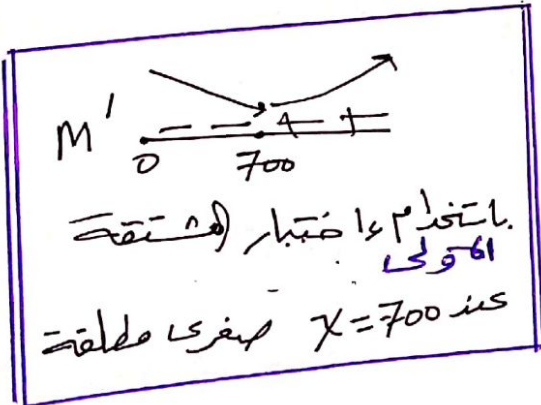 M' - - - + + +
0 700
باستخدام إختبار المشتقة
الأولى
عند x = 700 صغرى مطلقة